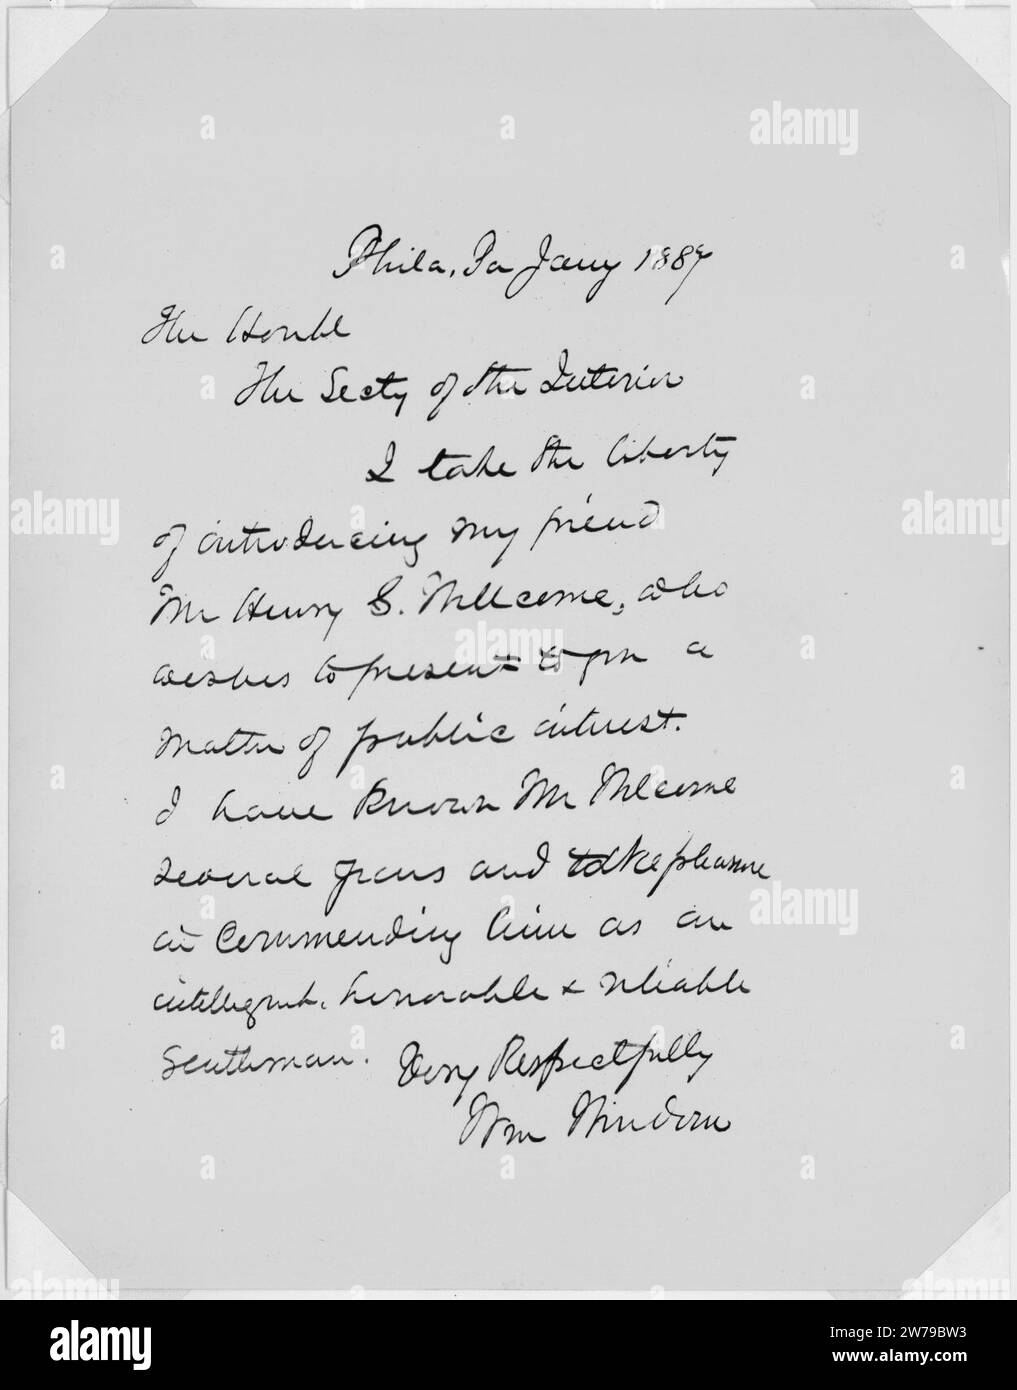 Phila, Pa Jany 1887
The Honbl
The Secty of the Interior
I take the liberty
of introducing my friend
Mr Henry S. Wellcome, who
wishes to present to you a
matter of public interest.
I have known Mr Wellcome
several years and take pleasure
in commending him as an
intelligent, honorable & reliable
gentleman. Very Respectfully
Wm Windom
alamy
Image ID: 2W79BW3
www.alamy.com